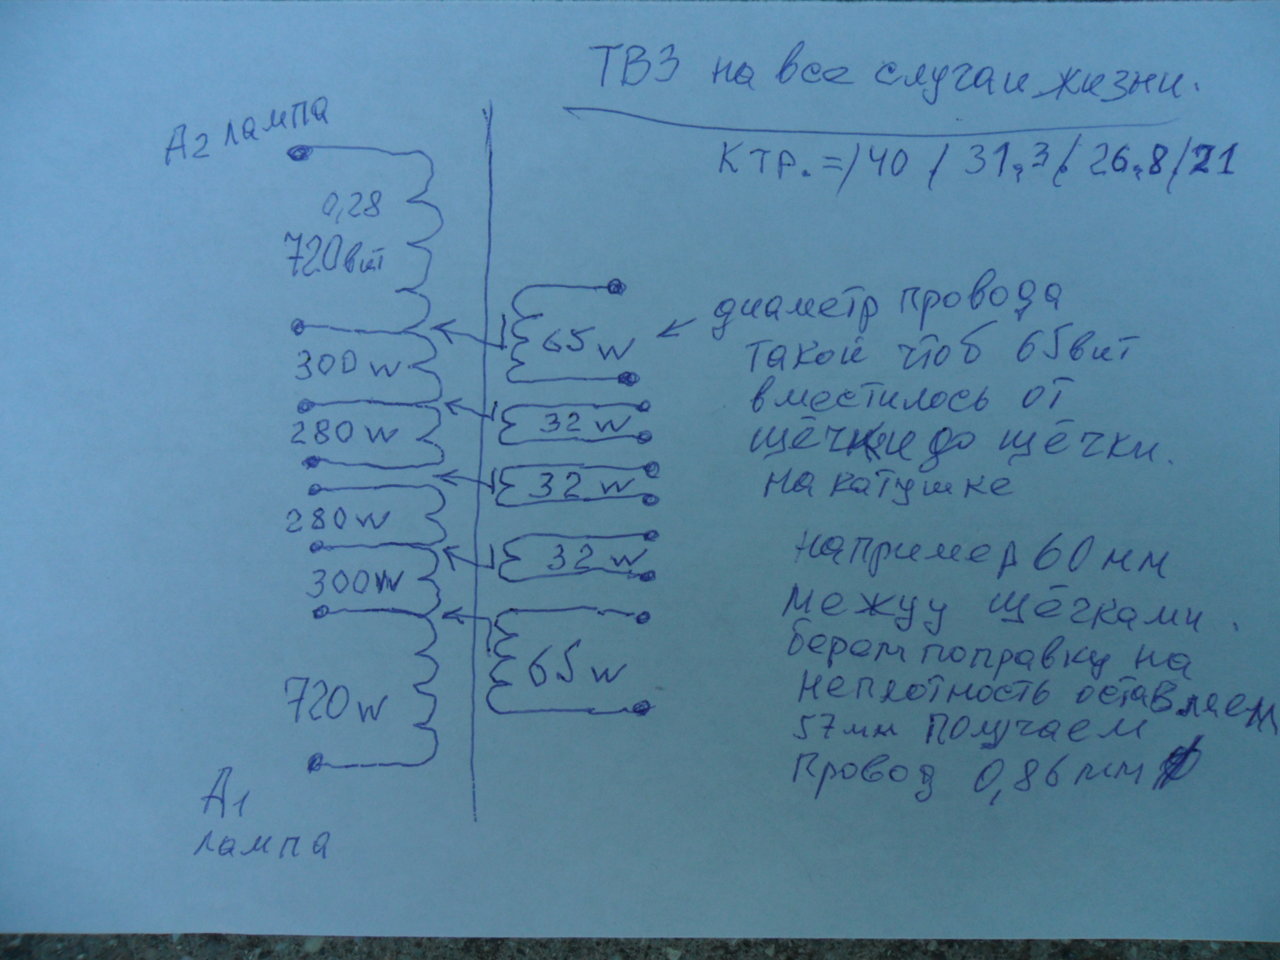 ТВЗ на все случаи жизни.
Ктр.=/40 / 31,3/ 26,8/21
А2 лампа
0,28
720вит
300w
280w
280w
300w
720w
А1
лампа
65w
32w
32w
32w
65w
диаметр провода
такой чтоб 65вит
вместилось от
щёчки до щёчки.
на катушке
например 60мм
между щёчками.
берем поправку на
неплотность оставляем
57мм получаем
провод 0,86мм